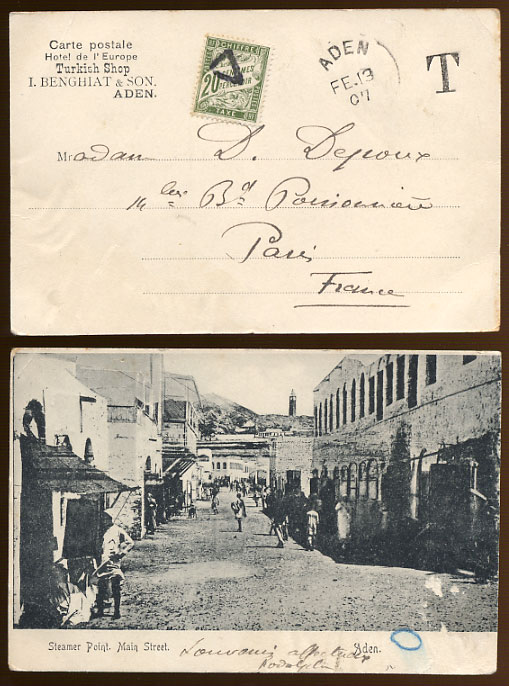 Carte postale
Hotel de l'Europe
Turkish Shop
I. BENGHIAT & SON.
ADEN.
CHIFFRE
20
CENTIMES
PERCEVOIR
TAXE
ADEN
FE.13
07
T
Madam D. Depoux
14 bis Bd Poissonnière
Paris
France
Steamer Point. Main Street.
Souvenir affectueux
Aden.
Rodolphe